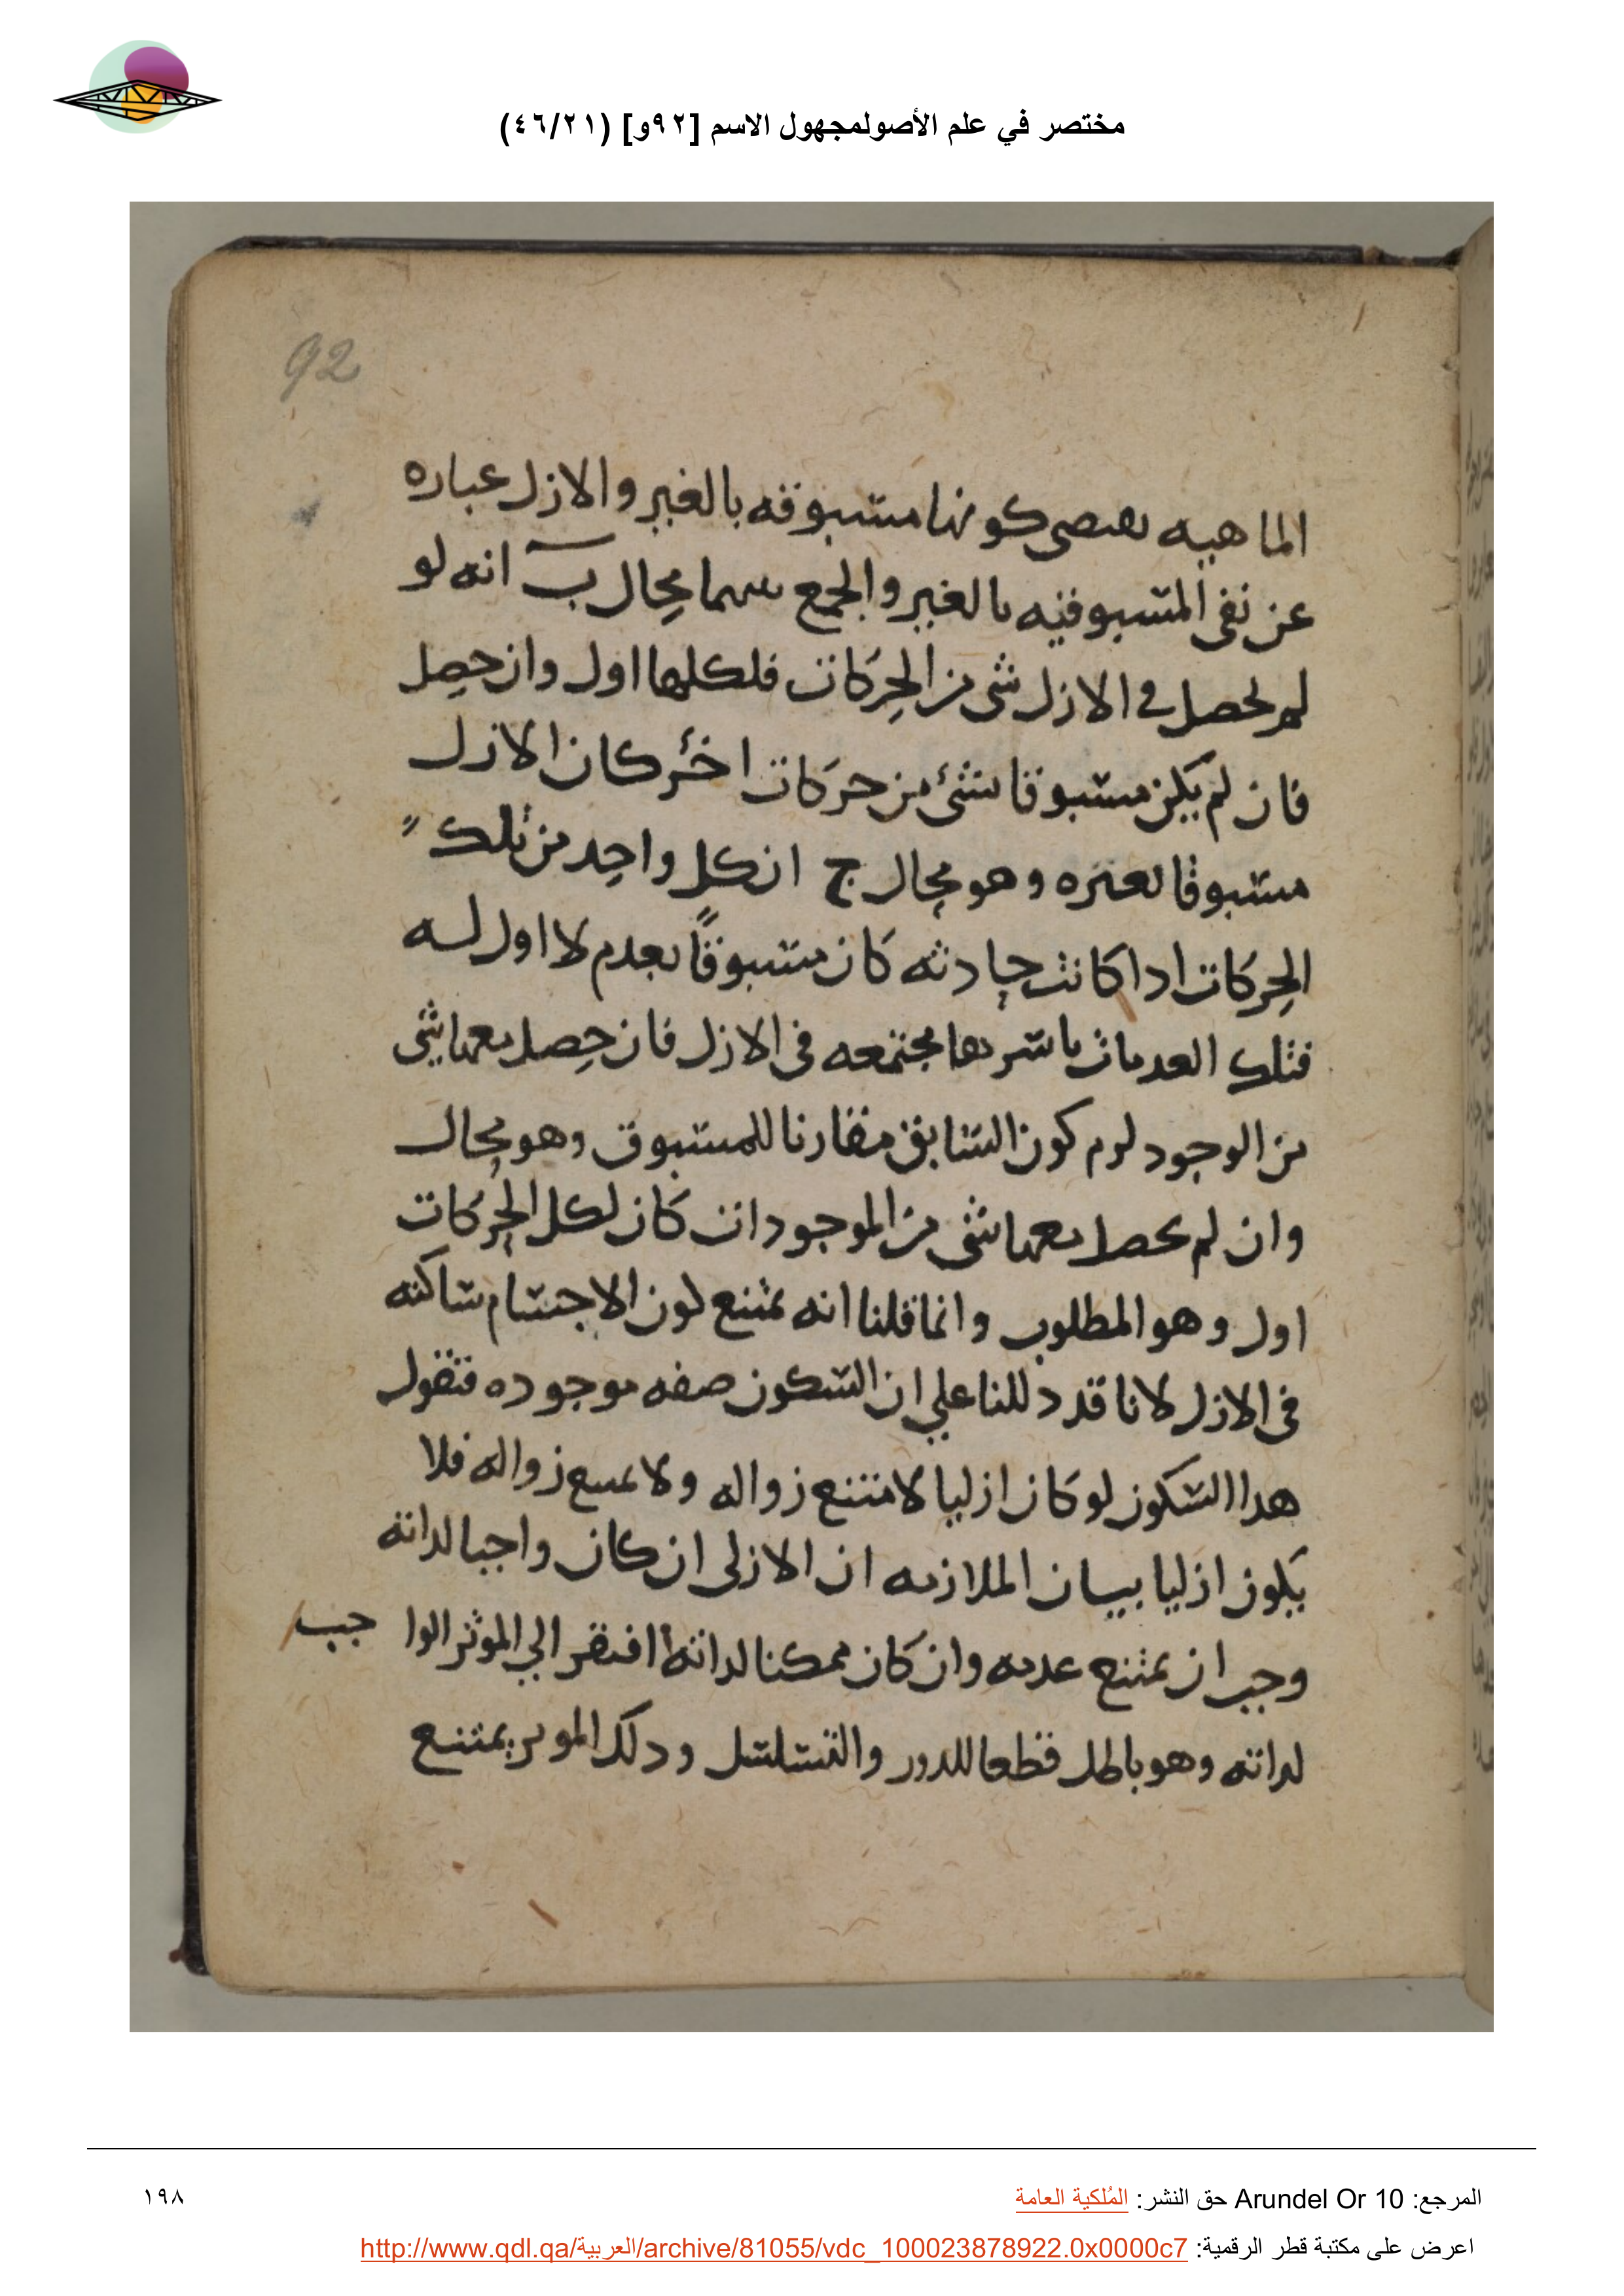 مختصر في علم الأصولمجهول الاسم [٩٢و] (٤٦/٢١)
92
الماهيه يقتضي كونها مسبوقه بالغير والازل عباره
عن نفى المسبوقيه بالغير والجمع بينهما محال ب انه لو
لم يحصل في الازل شي من الحركات فلكلها اول وان حصل
فان لم يكن مسبوقا بشئ من حركات اخر كان الازل
مسبوقا بغيره وهو محال ج ان كل واحد من تلك
الحركات اذا كانت حادثه كان مسبوقا بعدم لا اول له
فتلك العدمات باسرها مجتمعه فى الازل فان حصل معها شى
من الوجود لزم كون السابق مقارنا للمسبوق وهو محال
وان لم يحصل معها شى من الموجودات كان لكل الحركات
اول وهو المطلوب وانما قلنا انه يمتنع كون الاجسام ساكنه
فى الازل لانا قد دللنا علي ان السكون صفه موجوده فنقول
هذا السكون لو كان ازليا لامتنع زواله ولا يمتنع زواله فلا
يكون ازليا بيان الملازمه ان الازلى ان كان واجبا لذاته
وجب ان يمتنع عدمه وان كان ممكنا لذاته افتقر الي الموثر الواجب
لذاته وهو باطل قطعا للدور والتسلسل وذلك الموثر يمتنع
المرجع: Arundel Or 10 حق النشر: المُلكية العامة
١٩٨
اعرض على مكتبة قطر الرقمية: http://www.qdl.qa/العربية/archive/81055/vdc_100023878922.0x0000c7